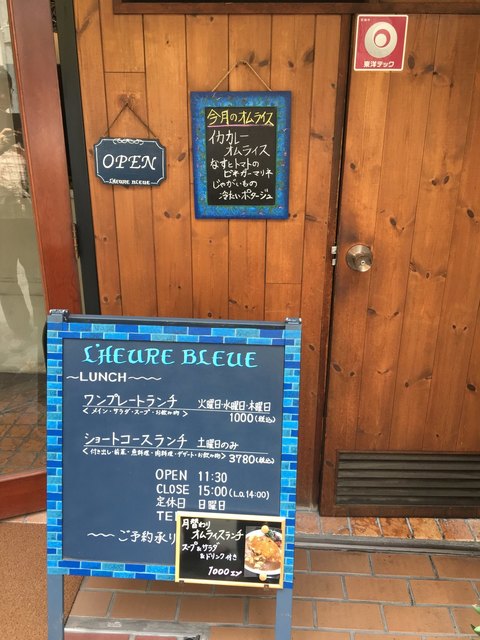 東洋テック
OPEN
L'HEURE BLEUE
今月のオムライス
イカカレー
オムライス
なすとトマトの
ビネガーマリネ
じゃがいもの
冷たいポタージュ
L'HEURE BLEUE
~LUNCH~~~
ワンプレートランチ 火曜日・水曜日・木曜日
<メイン・サラダ・スープ・お飲み物> 1000(税込)
ショートコースランチ 土曜日のみ
<付き出し・前菜・魚料理・肉料理・デザート・お飲み物> 3780(税込)
OPEN 11:30
CLOSE 15:00(L.O.14:00)
定休日 日曜日
TE
~~ご予約承り
月替わり
オムライスランチ
スープ&サラダ
&ドリンク付き
1000エン